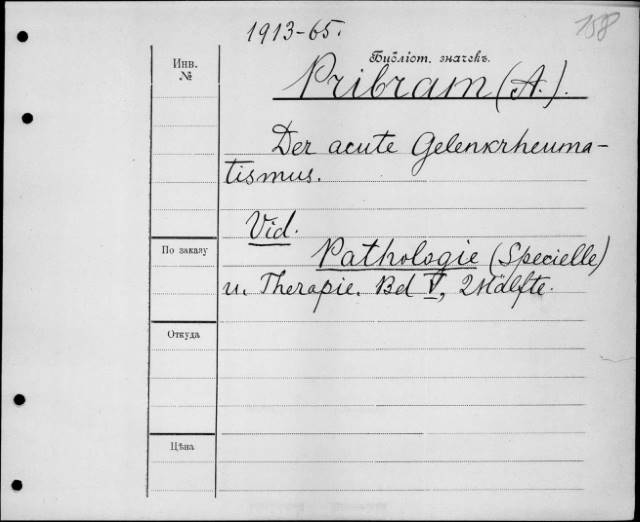 1913-65.
158
Инв. №
Библіот. значекъ.
Pribram (A.).
Der acute Gelenkrheuma-
tismus.
Vid.
Pathologie (Specielle)
По заказу
u. Therapie. Bd V, 2Hälfte.
Откуда
Цѣна